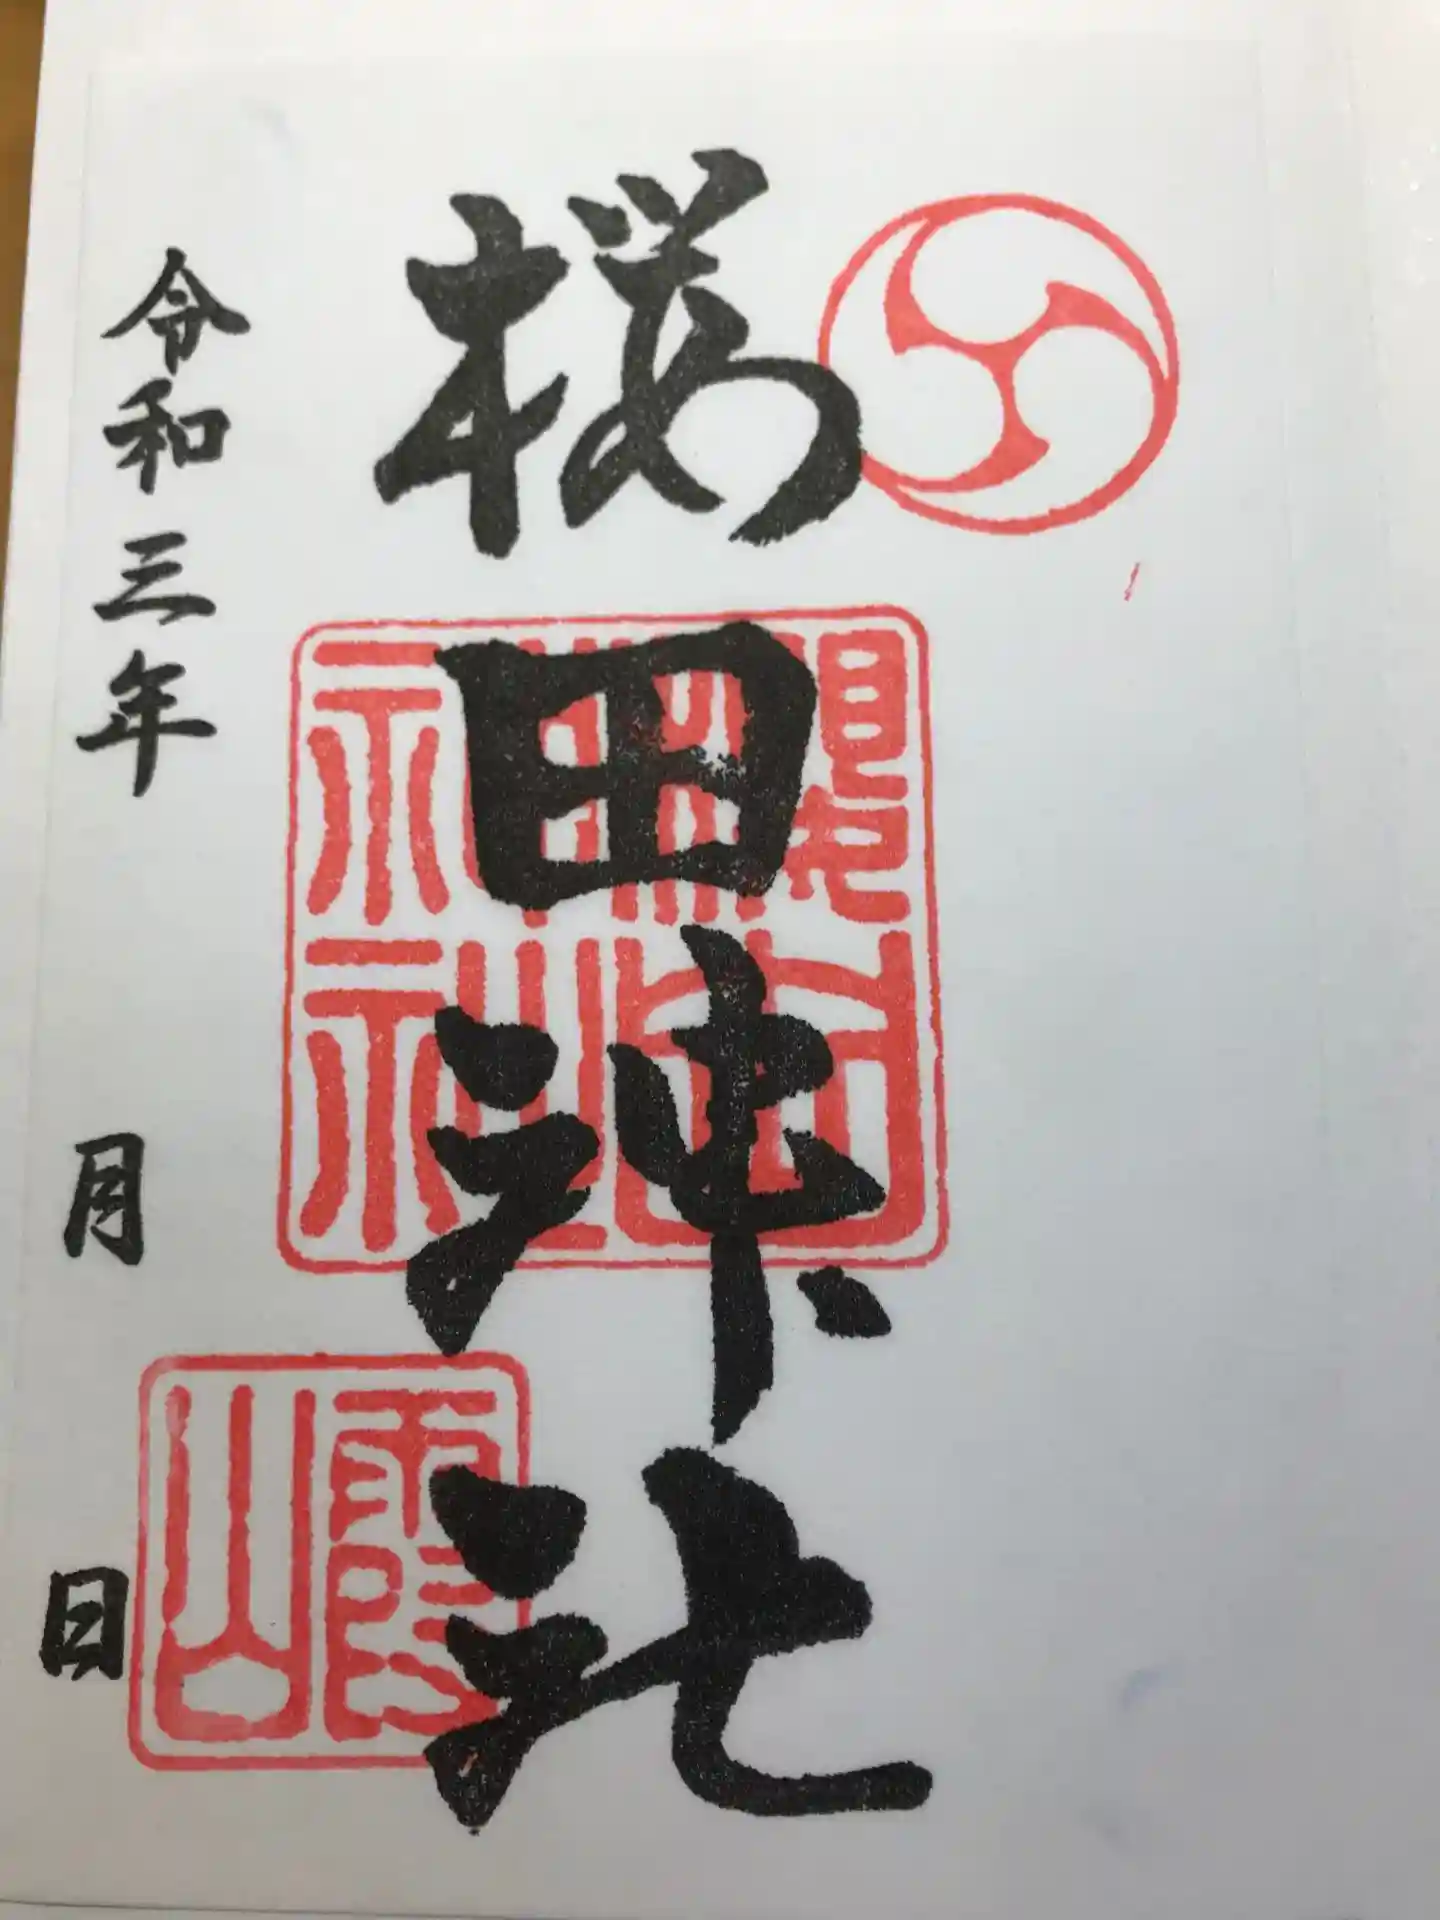 桜田神社
霞山
令和三年 月 日